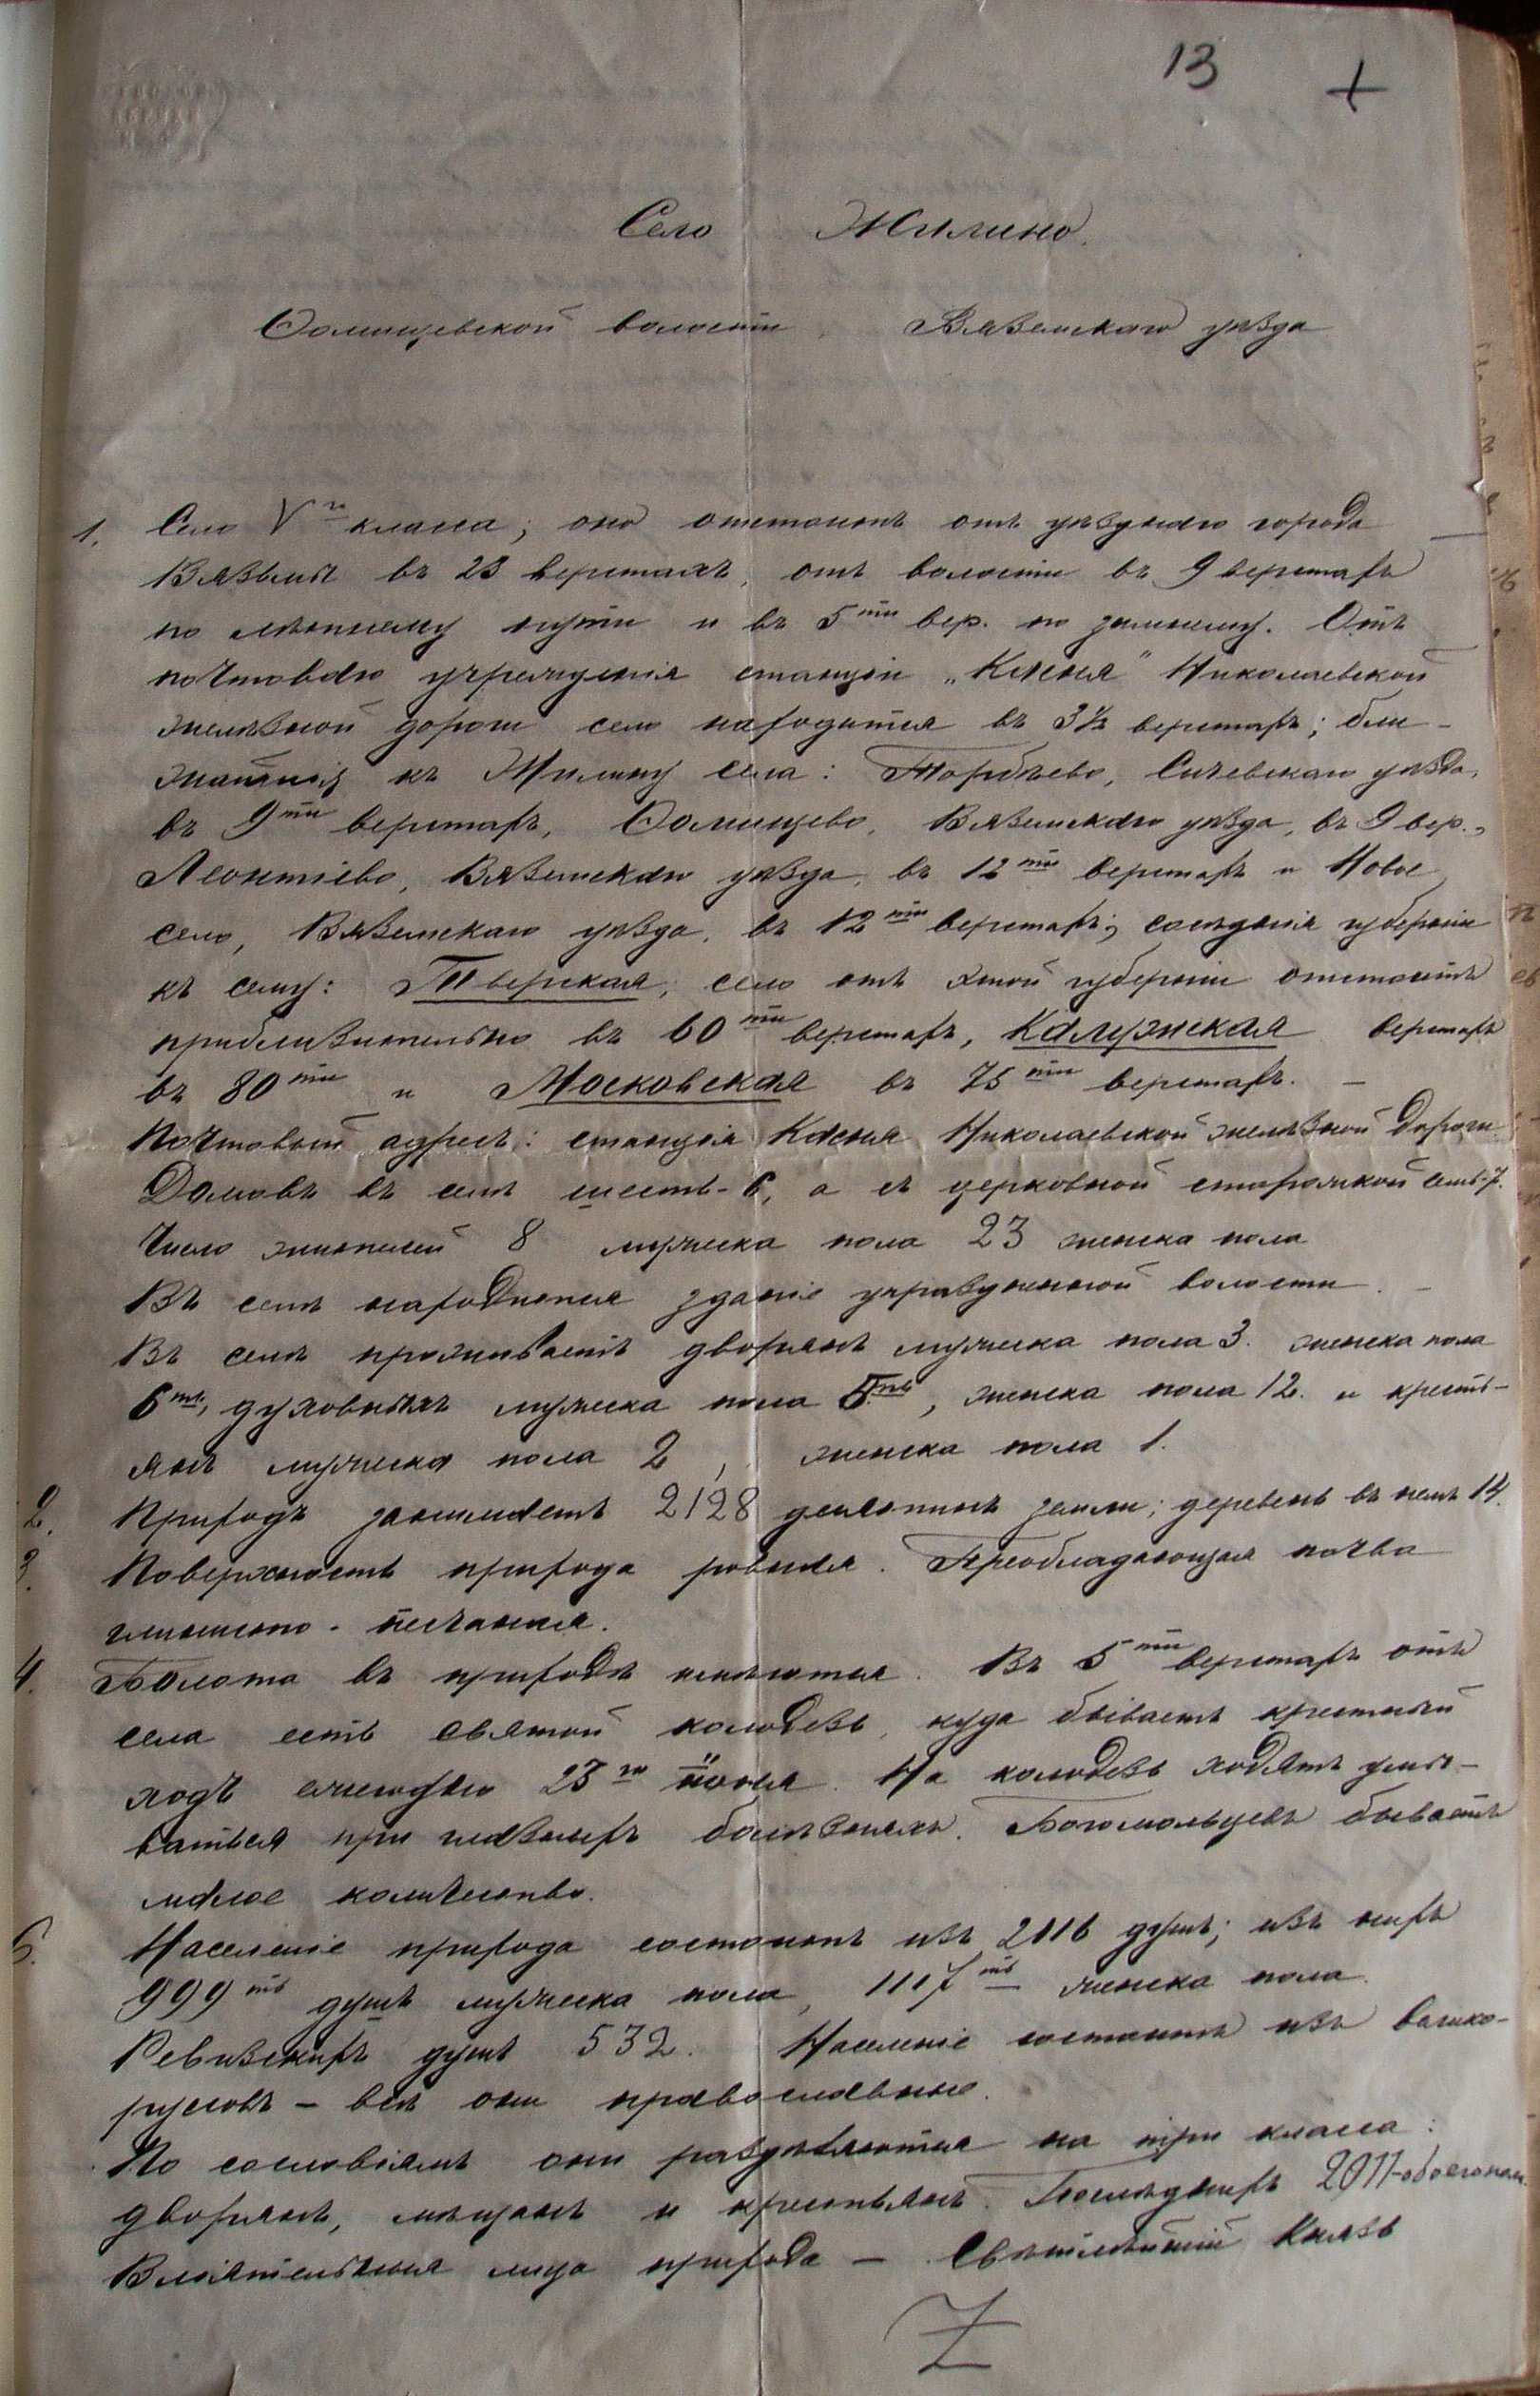 13 +
Село Жилино.
Фомищевской волости, Вяземскаго уѣзда
1. Село V го класса; оно отстоитъ отъ уѣзднаго города
Вязьмы въ 23 верстахъ, отъ волости въ 9 верстахъ
по лѣтнему пути и въ 5 ти вер. по зимнему. Отъ
почтоваго учрежденія станціи „Касня" Николаевской
желѣзной дороги село находится въ 3½ верстахъ; бли-
жайшія къ Жилину села: Торбѣево, Сычевскаго уѣзда,
въ 9 ти верстахъ, Фомищево, Вяземскаго уѣзда, въ 9 вер.,
Леонтіево, Вяземскаго уѣзда, въ 12 ти верстахъ и Новое
село, Вяземскаго уѣзда, въ 12 ти верстахъ; сосѣднія губерніи
къ селу: Тверская; село отъ этой губерніи отстоитъ
приблизительно въ 60 ти верстахъ, Калужская верстахъ
въ 80 ти и Московская въ 75 ти верстахъ. —
Почтовый адресъ: станція Касня Николаевской желѣзной дороги.
Домовъ въ селѣ шесть - 6, а съ церковной сторожкой семь-7.
Число жителей 8 мужеска пола 23 женска пола
Въ селѣ находится зданіе упраздненной волости. —
Въ селѣ проживаетъ дворянъ мужеска пола 3. женска пола
6 ть, духовныхъ мужеска пола 5 ть, женска пола 12. и кресть-
янъ мужеска пола 2, женска пола 1.
2. Приходъ занимаетъ 2128 десятинъ земли; деревень въ немъ 14.
3. Поверхность прихода ровная. Преобладающая почва
глинисто-песчаная.
4. Болота въ приходѣ имѣются. Въ 5 ти верстахъ отъ
села есть святой колодезь, куда бываетъ крестный
ходъ ежегодно 23 го іюня. На колодезь ходятъ умы-
ваться при глазныхъ болѣзняхъ. Богомольцевъ бываетъ
малое количество.
5. Населеніе прихода состоитъ изъ 2116 душъ; изъ нихъ
999 ть душъ мужеска пола, 1117 ть женска пола.
Ревизскихъ душъ 532. Населеніе состоитъ изъ велико-
руссовъ — всѣ они православные.
По сословіямъ они раздѣляются на три класса:
дворянъ, мѣщанъ и крестьянъ. Послѣднихъ 2011-обоего пол.
Вліятельныя лица прихода — Свѣтлѣйшій Князь